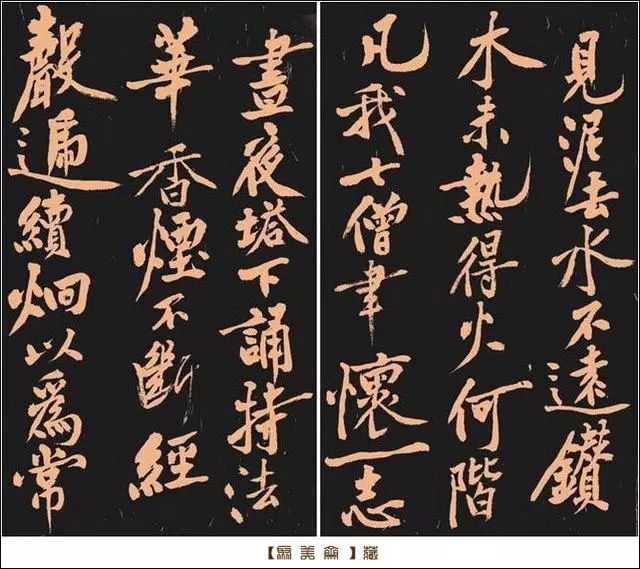 見泥去水不遠鑽
木未熱得火何階
凡我七僧聿懷一志
晝夜塔下誦持法
華香煙不斷經
聲遍續炯以為常
【 美 】藏